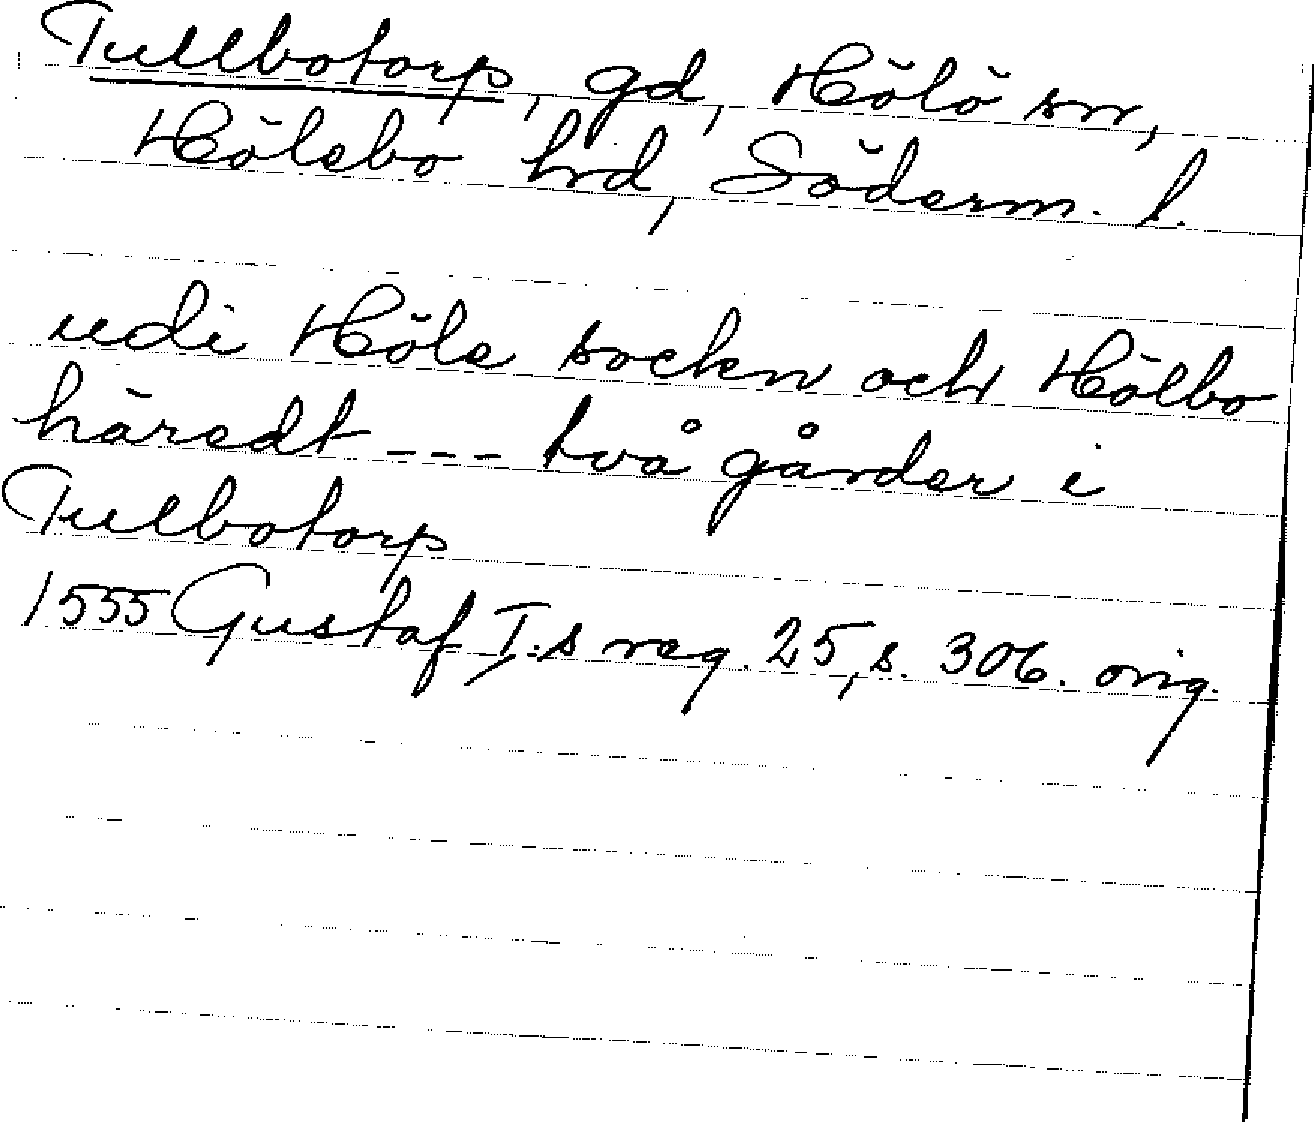 Tullbotorp, gd, Hölö sn,
Hölebo hd, Söderm. l.
udi Höle socken och Hölbo
häredt --- två gårder i
Tulbotorp
1555 Gustaf I:s reg. 25, s. 306. orig.